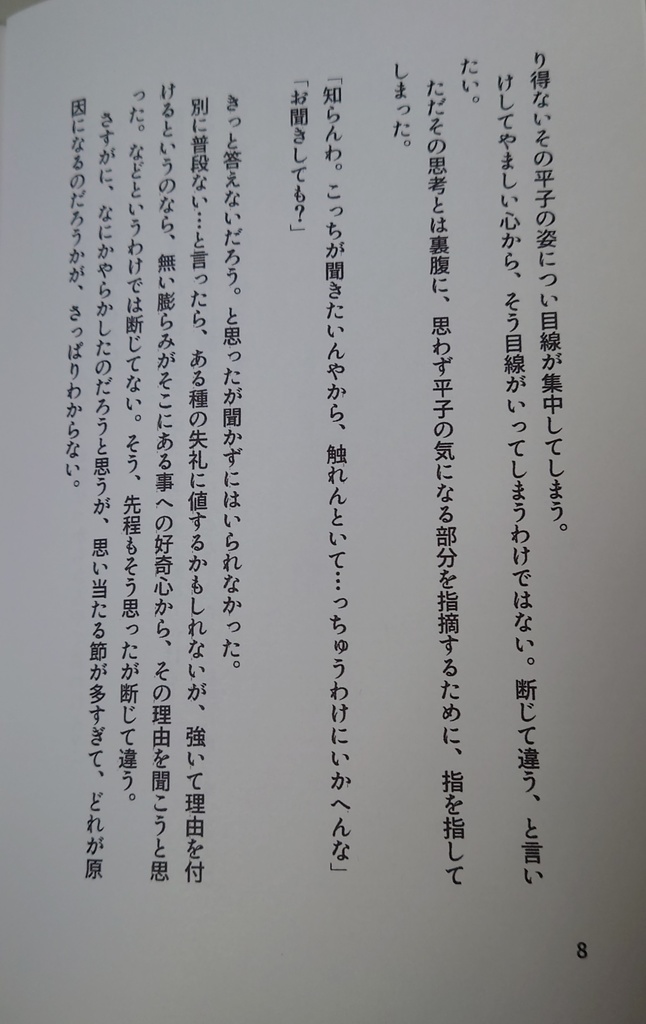 り得ないその平子の姿につい目線が集中してしまう。
けしてやましい心から、そう目線がいってしまうわけではない。断じて違う、と言い
たい。
ただその思考とは裏腹に、思わず平子の気になる部分を指摘するために、指を指して
しまった。
「知らんわ。こっちが聞きたいんやから、触れんといて…っちゅうわけにいかへんな」
「お聞きしても？」
きっと答えないだろう。と思ったが聞かずにはいられなかった。
別に普段ない…と言ったら、ある種の失礼に値するかもしれないが、強いて理由を付
けるというのなら、無い膨らみがそこにある事への好奇心から、その理由を聞こうと思
った。などというわけでは断じてない。そう、先程もそう思ったが断じて違う。
さすがに、なにかやらかしたのだろうと思うが、思い当たる節が多すぎて、どれが原
因になるのだろうかが、さっぱりわからない。
8